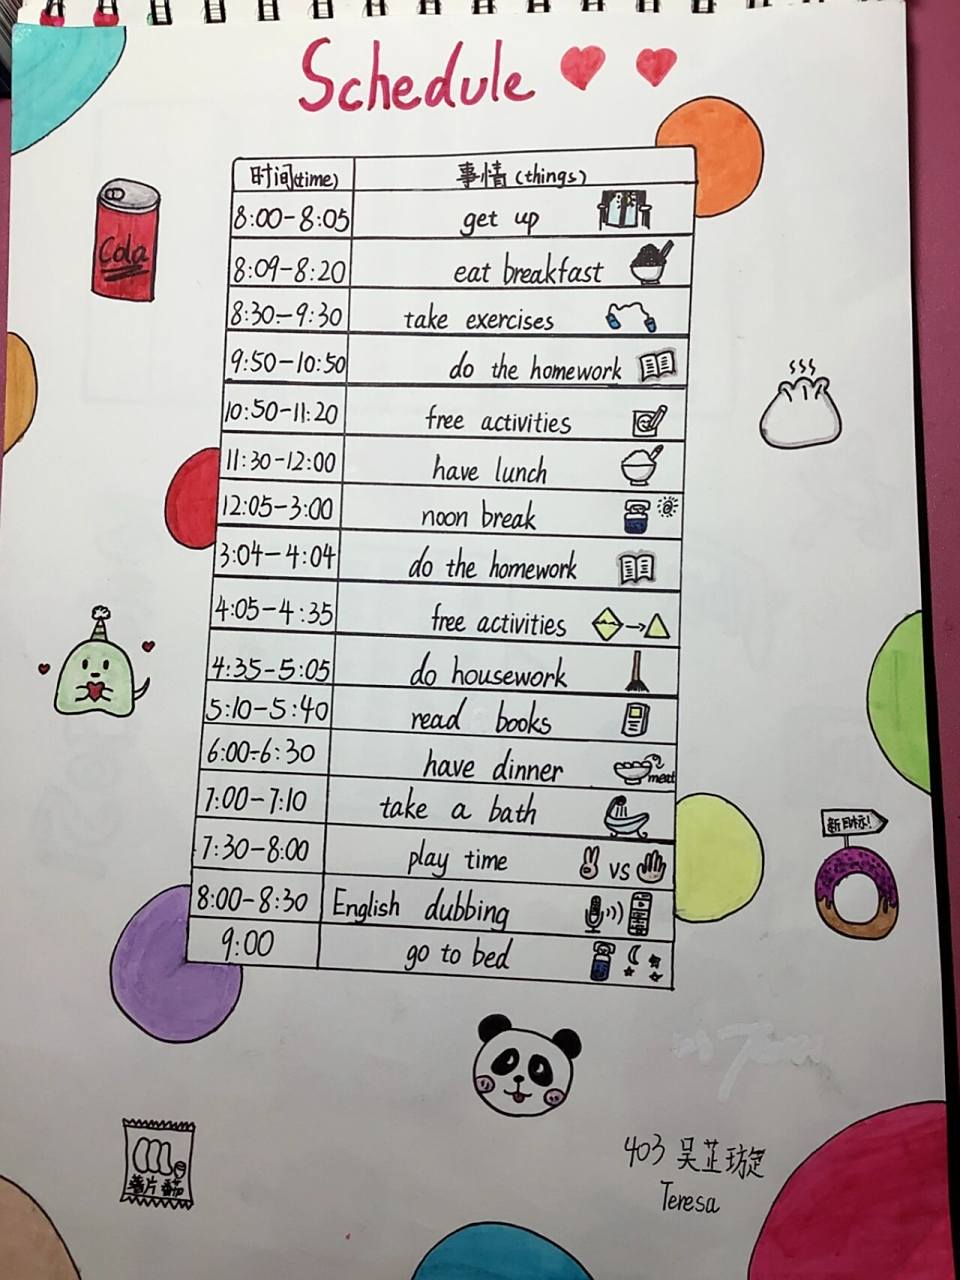 Schedule
时间(time) 事情(things)
8:00-8:05 get up
8:09-8:20 eat breakfast
8:30-9:30 take exercises
9:50-10:50 do the homework
10:50-11:20 free activities
11:30-12:00 have lunch
12:05-3:00 noon break
3:04-4:04 do the homework
4:05-4:35 free activities
4:35-5:05 do housework
5:10-5:40 read books
6:00-6:30 have dinner meat
7:00-7:10 take a bath
7:30-8:00 play time VS
8:00-8:30 English dubbing
9:00 go to bed
Cola
新目标!
薯片 番茄
403 吴芷璇
Teresa